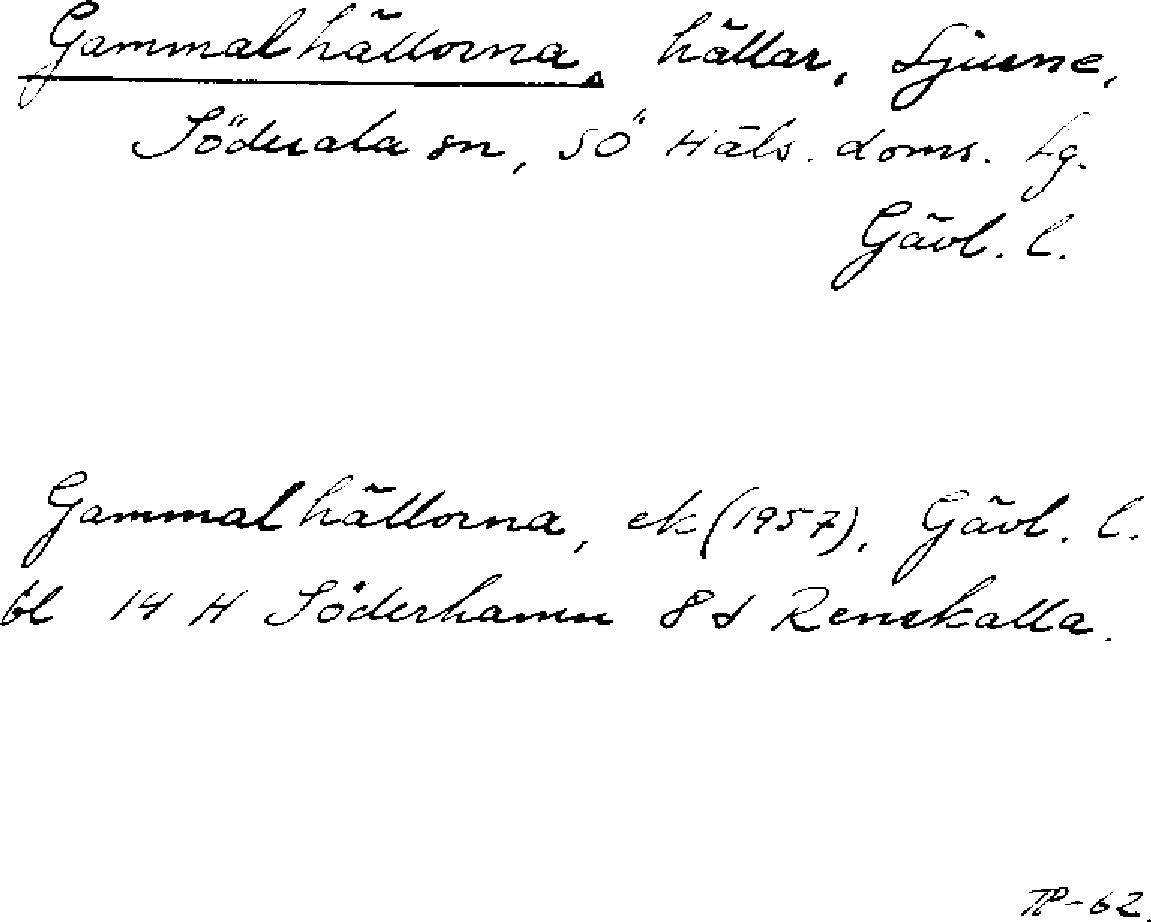 Gammalhällorna, hällar, Ljusne,
Söderala sn, SÖ Häls. doms. Lg.
Gävl. l.
Gammalhällorna, ek (1957), Gävl. l.
bl 14 H Söderhamn 8 d Renskalla.
TP-62.